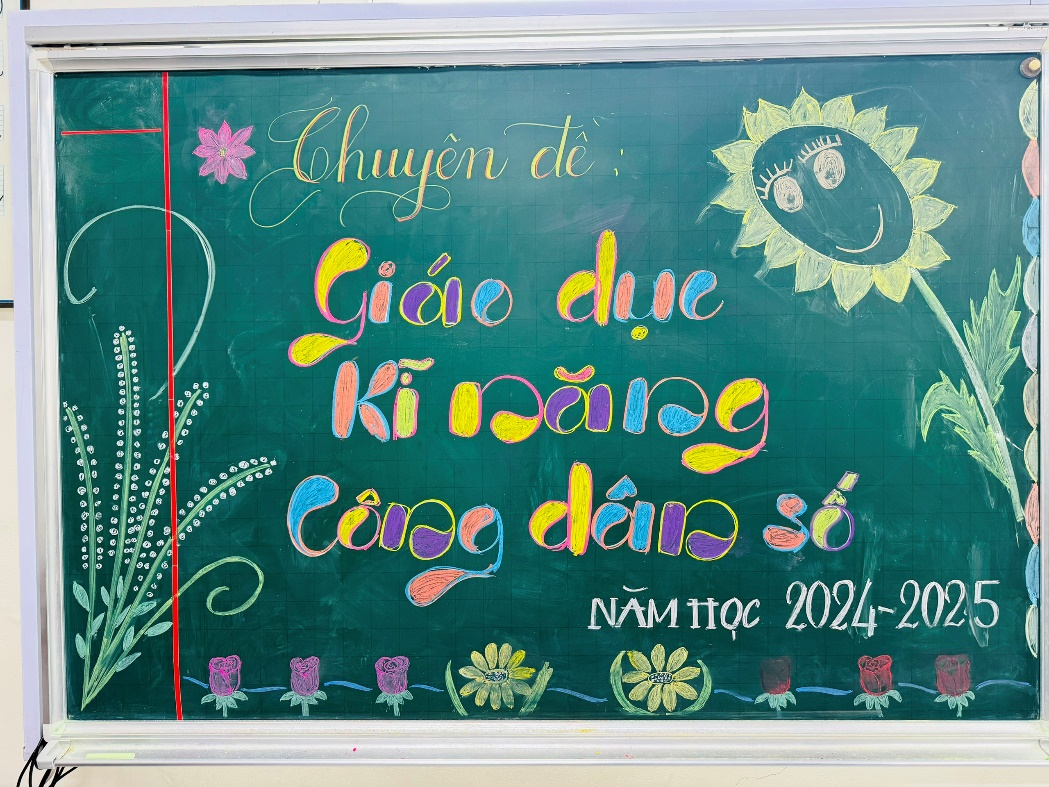 Chuyên đề :
Giáo dục
Kĩ năng
Công dân số
NĂM HỌC 2024-2025